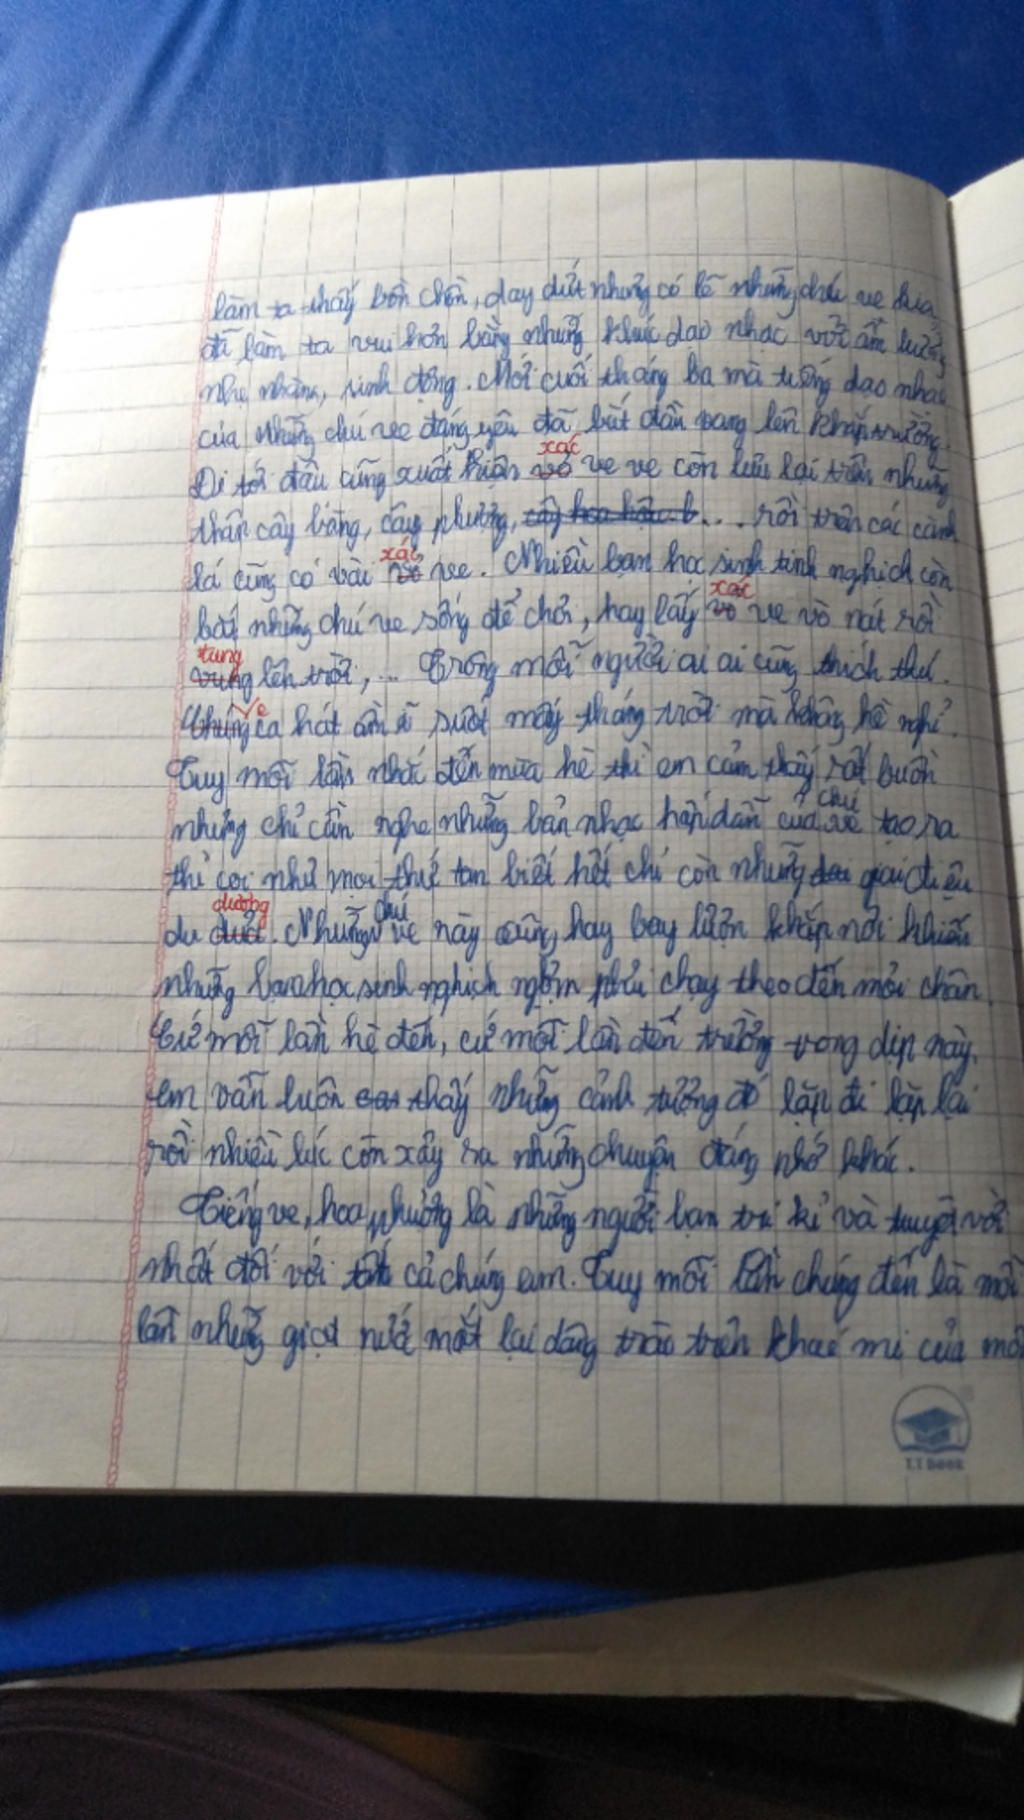 làm ta thấy bồn chồn, day dứt nhưng có lẽ những chú ve kia
đã làm ta vui hơn bằng những khúc dạo nhạc với âm lượng
nhẹ nhàng, sinh động. Mới cuối tháng ba mà tiếng dạo nhạc
của những chú ve đáng yêu đã bắt đầu vang lên khắp trường.
xác
Đi tới đâu cũng xuất hiện vỏ ve ve còn lưu lại trên những
thân cây bàng, cây phượng, cây hoa hậu b.... rồi trên các cành
xác
lá cũng có vài vỏ ve. Nhiều bạn học sinh tinh nghịch còn
xác
bắt những chú ve sống để chơi, hay lấy vỏ ve vò nát rồi
tung
vung lên trời,... Trông mỗi người ai ai cũng thích thú.
Ve
Chúng ca hát ầm ĩ suốt mấy tháng trời mà không hề nghỉ.
Tuy mỗi lần nhắc đến mùa hè thì em cảm thấy rất buồn
chú
nhưng chỉ cần nghe những bản nhạc hấp dẫn của ve tạo ra
thì coi như mọi thứ tan biết hết chỉ còn những giai điệu
dương
du
chú
. Những ve này cũng hay bay lượn khắp nơi khiến
những bạn học sinh nghịch ngợm phải chạy theo đến mỏi chân.
Cứ mỗi lần hè đến, cứ mỗi lần đến trường trong dịp này,
em vẫn luôn thấy những cảnh tượng đó lặp đi lặp lại
rồi nhiều lúc còn xảy ra những chuyện đáng nhớ khác.
Tiếng ve, hoa phượng là những người bạn tri kỉ và tuyệt vời
nhất đối với tất cả chúng em. Tuy mỗi lần chúng đến là mỗi
lần những giọt nước mắt lại dâng trào trên khoé mi của mỗi
T.T Book